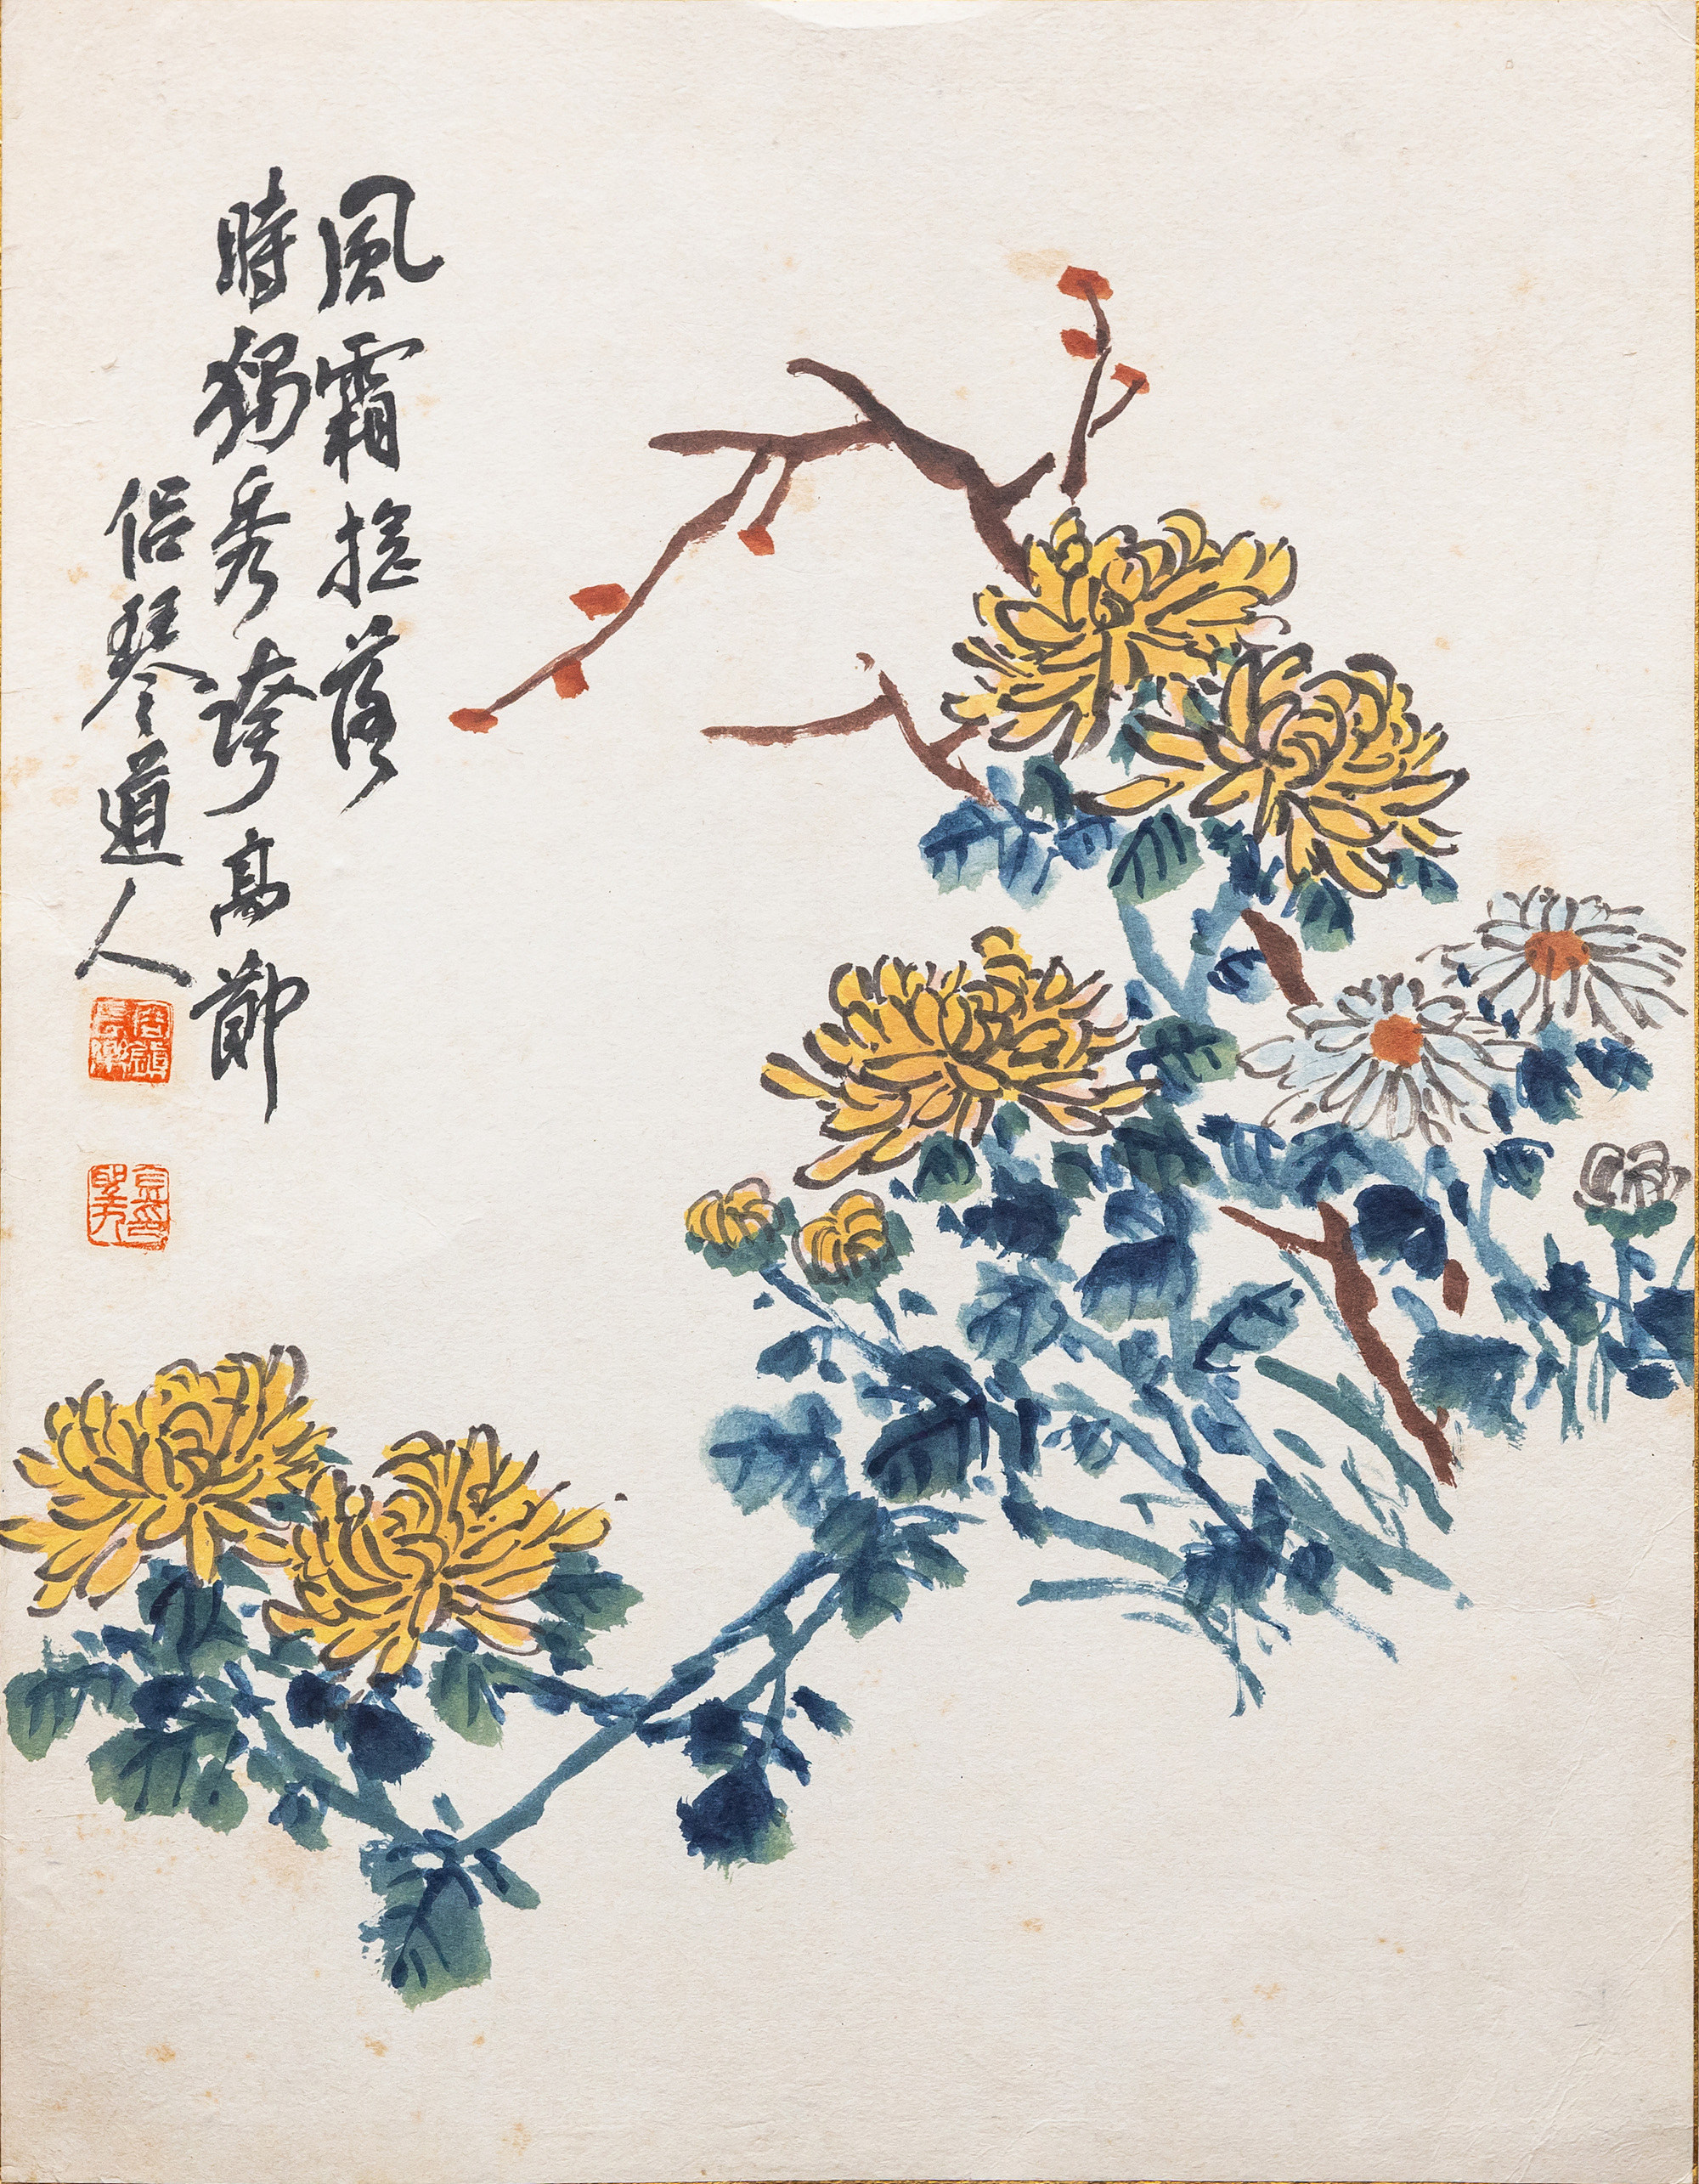 風霜搖落
時獨秀誇高節
侣琴道人